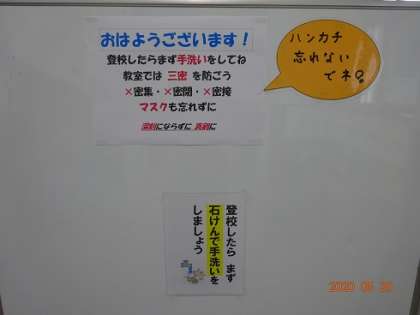 おはようございます！
登校したらまず手洗いをしてね
教室では 三密 を防ごう
×密集・×密閉・×密接
マスクも忘れずに
深刻にならずに 真剣に
ハンカチ
忘れない
でネ
登校したら まず
石けんで手洗いを
しましょう